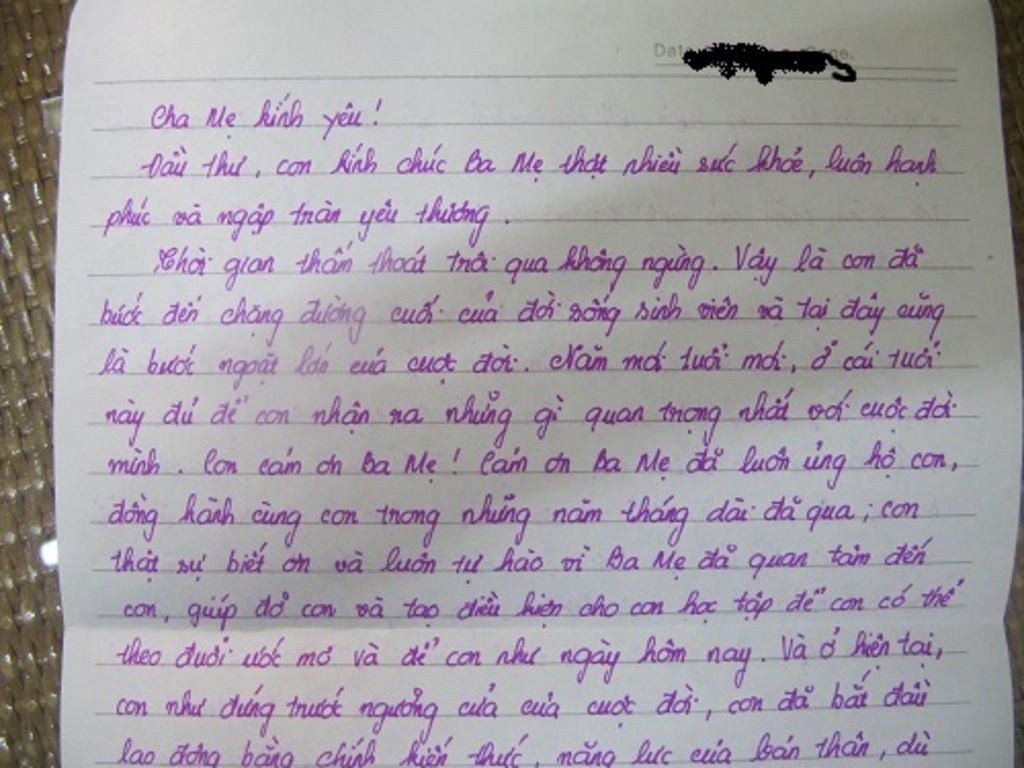 Date
Cha Mẹ kính yêu!
Đầu thư, con kính chúc Ba Mẹ thật nhiều sức khoẻ, luôn hạnh
phúc và ngập tràn yêu thương.
Thời gian thấm thoát trôi qua không ngừng. Vậy là con đã
bước đến chặng đường cuối của đời sống sinh viên và tại đây cũng
là bước ngoặt lớn của cuộc đời. Năm mới tuổi mới, ở cái tuổi
này đủ để con nhận ra những gì quan trọng nhất với cuộc đời
mình. Con cảm ơn Ba Mẹ! Cảm ơn Ba Mẹ đã luôn ủng hộ con,
đồng hành cùng con trong những năm tháng dài đã qua; con
thật sự biết ơn và luôn tự hào vì Ba Mẹ đã quan tâm đến
con, giúp đỡ con và tạo điều kiện cho con học tập để con có thể
theo đuổi ước mơ và để con như ngày hôm nay. Và ở hiện tại,
con như đứng trước ngưỡng cửa của cuộc đời, con đã bắt đầu
lao động bằng chính kiến thức, năng lực của bản thân, dù